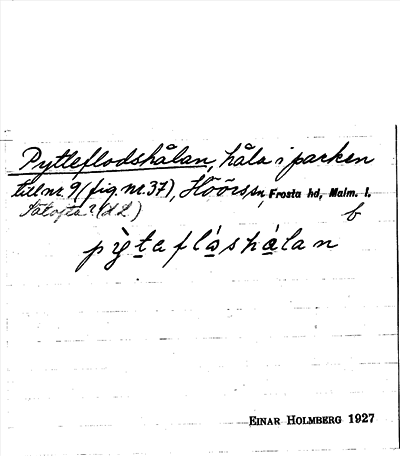 Pytteflodshålan, håla i parken
till nr. 9 (fig. nr. 37), Höörs sn, Frosta hd, Malm. l.
b
pỳtaflåshålan
EINAR HOLMBERG 1927